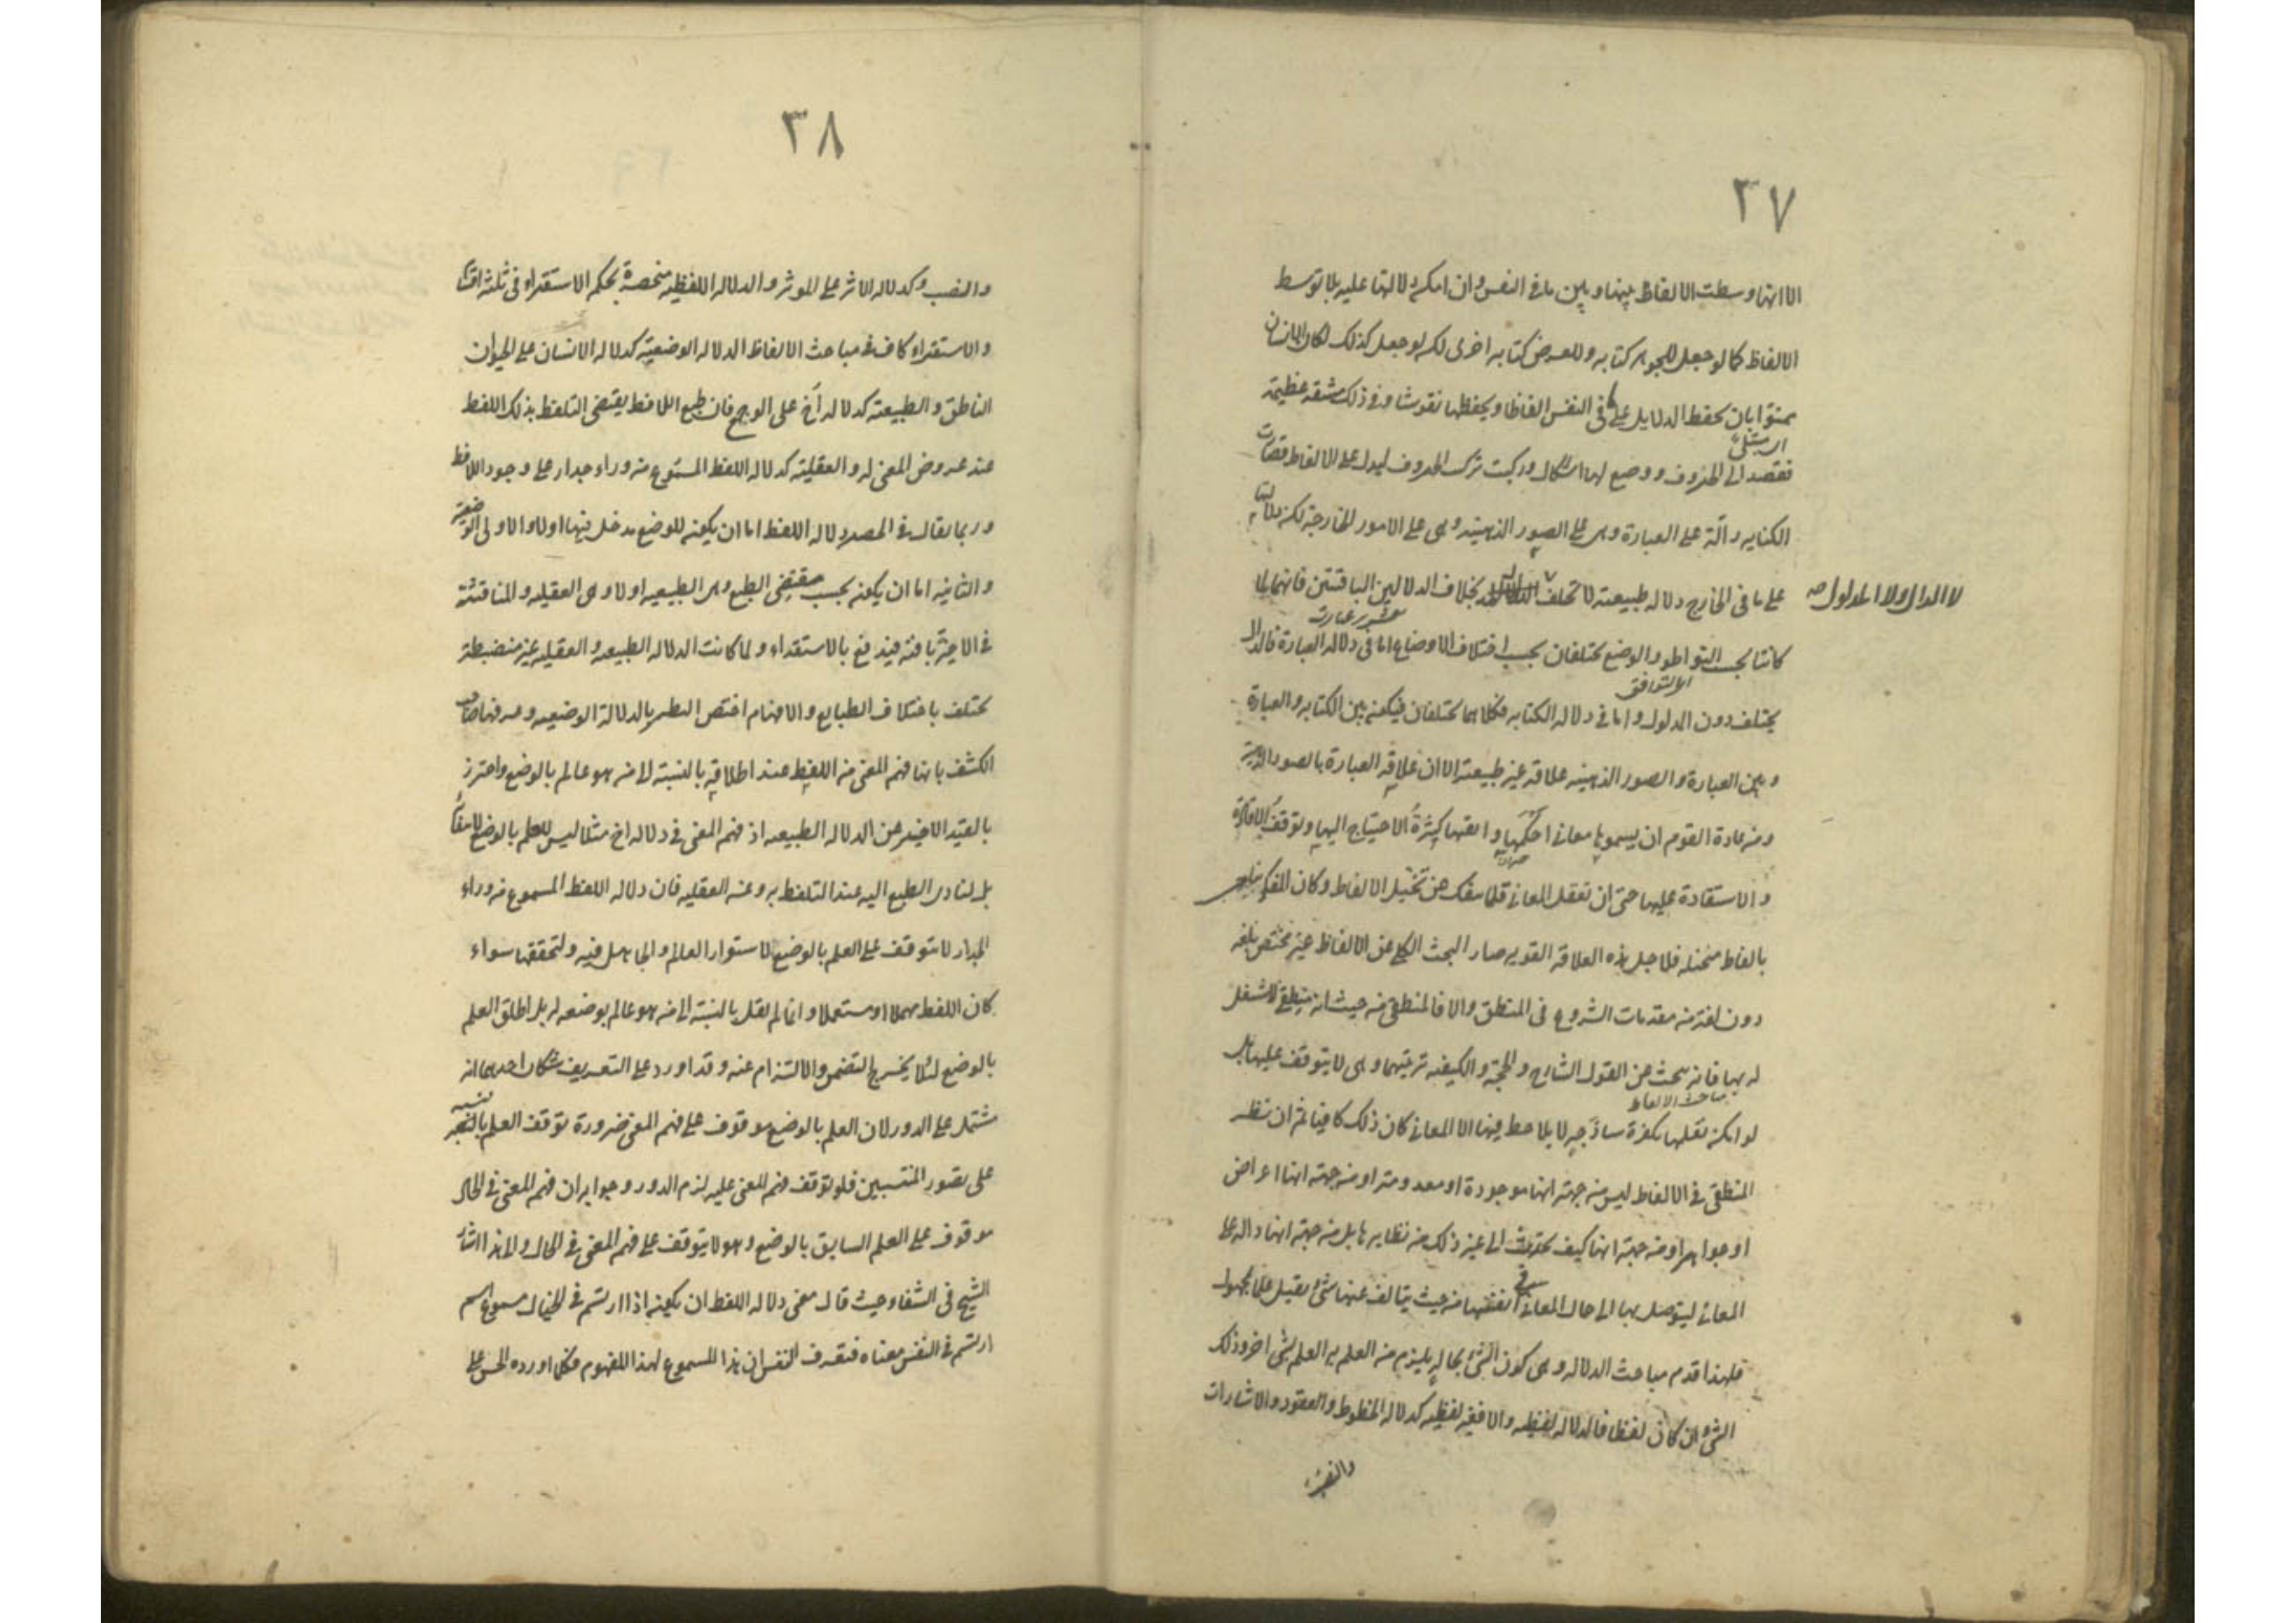 ٣٧
الا انها وسطت الالفاظ بينها وبين ما فى النفس وان امكن دلالتها عليه بلا توسط
الالفاظ كما لو جعل للجوهر كتابه وللعرض كتابه اخرى لكن لو جعل كذلك لكان الانسان
ممنوا بان يحفظ الدلايل على ما فى النفس الفاظا ويحفظها نقوشا وفى ذلك مشقه عظيمة
اى مبتلى
فقصد الى الحروف ووضع لها اشكال وركبت تركيب الحروف ليدل على الالفاظ فصارت
الكتابه دالّة على العبارة وهى على الصور الذهنيه وهى على الامور الخارجة لكن دلالتها
على ما فى الخارج دلاله طبيعته لا تختلف بخلاف الدلالتين الباقيتين فانهما لما
لا الدال ولا المدلول صح
كانتا بحسب التواطو والوضع تختلفان بحسب اختلاف الاوضاع اما فى دلاله العبارة فالدال
اى التوافق
يختلف دون المدلول واما فى دلاله الكتابه فكلاهما تختلفان فيكون بين الكتابه والعبارة
وبين العبارة والصور الذهنيه علاقه غير طبيعته الا ان علاقه العبارة بالصور الذهنية
ومن عادة القوم ان يسموها معانى احكمها واتقنها كثرةُ الاحتياج اليها وتوقف الافادة
والاستفادة عليها حتى ان تعقل المعانى قلما ينفك عن تخيّل الالفاظ وكان المفكر يناجى
بالفاظ متخيله فلاجل هذه العلاقه القويه صار البحث الكلى عن الالفاظ غير مختص بلغه
دون لغة من مقدمات الشروع فى المنطق والا فالمنطقى من حيث انه منطقى لا شغل
له بها فانه يبحث عن القول الشارح والحجة والكيفيه ترتيبهما وهى لا يتوقف عليها بل
مباحث الالفاظ
لو امكن تعقلها بفكرة ساذجه لا يلاحظ فيها الا المعانى كان ذلك كافيا ثم ان نظر
المنطقى فى الالفاظ ليس من جهة انها موجودة او معدومة او من جهة انها اعراض
او جواهر او من جهة انها كيف تحدث الى غير ذلك من نظايرها بل من جهة انها دالة على
المعانى ليتوصل بها الى حال المعانى فى انفسها من حيث يتالف عنها شئ يفيد علما بمجهول
فلهذا قدم مباحث الدلاله وهى كون الشئ بحاله يلزم من العلم به العلم بشئ اخر وذلك
الشئ ان كان لفظا فالدلاله لفظيه والا فغير لفظيه كدلاله الخطوط والعقود والاشارات
والنصب
٣٨
والنصب وكدلاله الاثر على الموثر والدلاله اللفظيه منحصرة بحكم الاستقراء فى ثلثه اقسام
والاستقراء كاف فى مباحث الالفاظ الدلاله الوضعيه كدلاله الانسان على الحيوان
الناطق والطبيعته كدلاله اخ على الوجع فان طبع اللافظ يقتضى التلفظ بذلك اللفظ
عند عروض المعنى له والعقليته كدلاله اللفظ المسموع من وراء جدار على وجود اللافظ
وربما يقال فى الحصر دلاله اللفظ اما ان يكون للوضع مدخل فيها اولا والاولى الوضعية
والثانيه اما ان يكون بحسب مقتضى الطبع وهى الطبيعيه اولا وهى العقليه والمناقشة
فى الاخيرة باقية فيدفع بالاستقراء ولما كانت الدلاله الطبيعيه والعقليه غير منضبطة
تختلف باختلاف الطبايع والافهام اختص النظر بالدلالة الوضعيه وعرفها صاحب
الكشف بانها فهم المعنى من اللفظ عند اطلاقه بالنسبة لا من هو عالم بالوضع واحترز
بالقيد الاخير عن الدلاله الطبيعيه اذ فهم المعنى فى دلاله اخ مثلا ليس للعلم بالوضع لانتفائه
بل لتادى الطبع اليه عند التلفظ به وعن العقليه فان دلاله اللفظ المسموع من وراء
الجدار لا يتوقف على العلم بالوضع لاستواء العالم والجاهل فيه ولتحققها سواء
كان اللفظ مهملا او مستعملا وانما لم يقل بالنسبة الى من هو عالم بوضعه له بل اطلق العلم
بالوضع لئلا يخرج التضمن والالتزام عنه وقد اورد على التعريف شكان احدهما انه
مشتمل على الدور لان العلم بالوضع موقوف على فهم المعنى ضرورة توقف العلم بالنسبة
على تصور المنتسبين فلو توقف فهم المعنى عليه لزم الدور وجوابه ان فهم المعنى فى الحال
موقوف على العلم السابق بالوضع وهو لا يتوقف على فهم المعنى فى الحال والى هذا اشار
الشيخ فى الشفاء حيث قال معنى دلاله اللفظ ان يكون اذا ارتسم فى الخيال مسموع اسم
ارتسم فى النفس معناه فتعرف النفس ان هذا المسموع لهذا المفهوم فكلما اورده الحس على